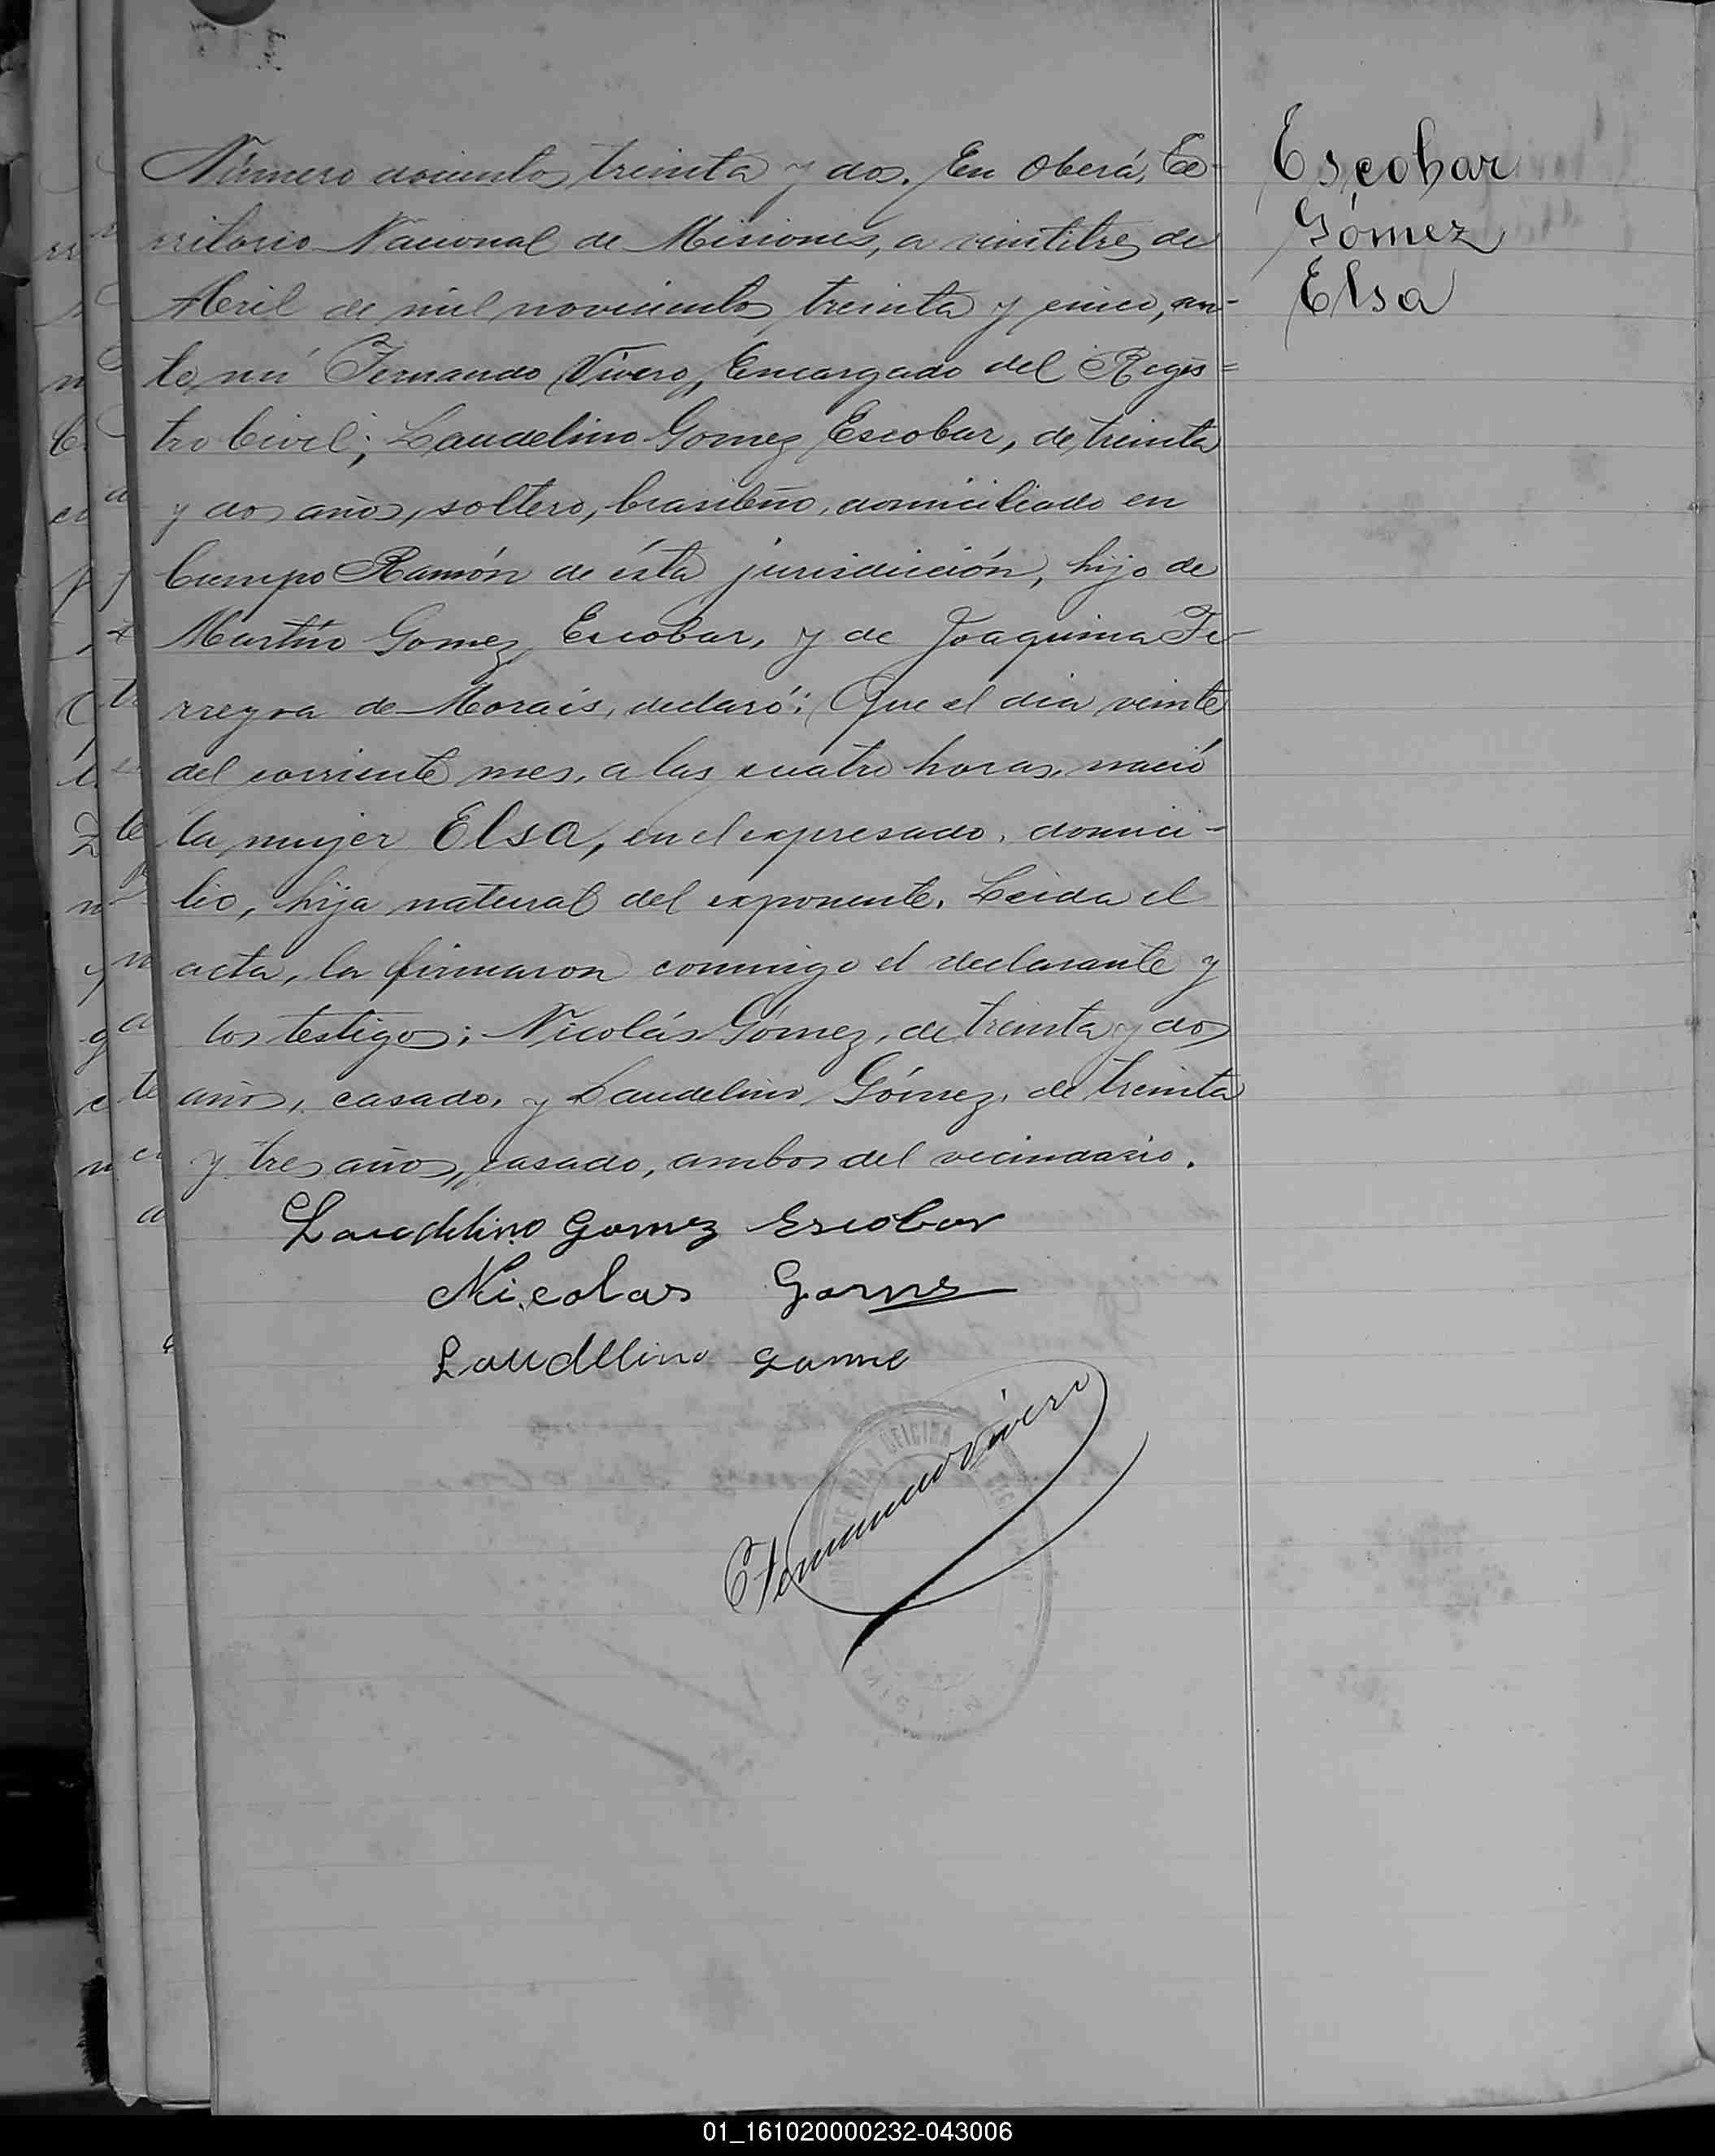 Número docientos treinta y dos. En Oberá, Te-
rritorio Nacional de Misiones, a veintitres de
Abril de mil novecientos treinta y cinco, an-
te mi Fernando Vivero, Encargado del Regis=
tro Civil; Laudelino Gomez Escobar, de treinta
y dos años, soltero, brasileño, domiciliado en
Campo Ramón de ésta jurisdicción, hijo de
Martín Gomez Escobar, y de Joaquina Fe-
rreyra de Morais, declaró: Que el dia veinte
del corriente mes, a las cuatro horas, nació
la mujer Elsa, en el expresado domici-
lio, hija natural del exponente. Leida el
acta, la firmaron conmigo el declarante y
los testigos; Nicolás Gómez, de treinta y dos
años, casado, y Laudelino Gómez, de treinta
y tres años, casado, ambos del vecindario.
Laudelino Gomez Escobar
Nicolas Gomes
Laudelino Gome
Fernando Vivero
OFICINA
Escobar
Gómez
Elsa
01_161020000232-043006